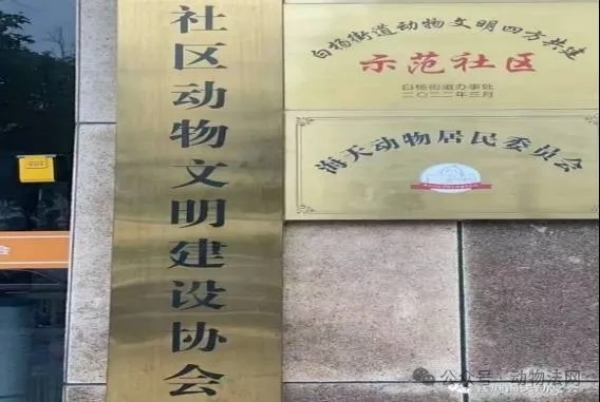 社区动物文明建设协会
白杨街道动物文明四方共建
示范社区
白杨街道办事处
二〇二二年三月
海天动物居民委员会
公众号·动物法网